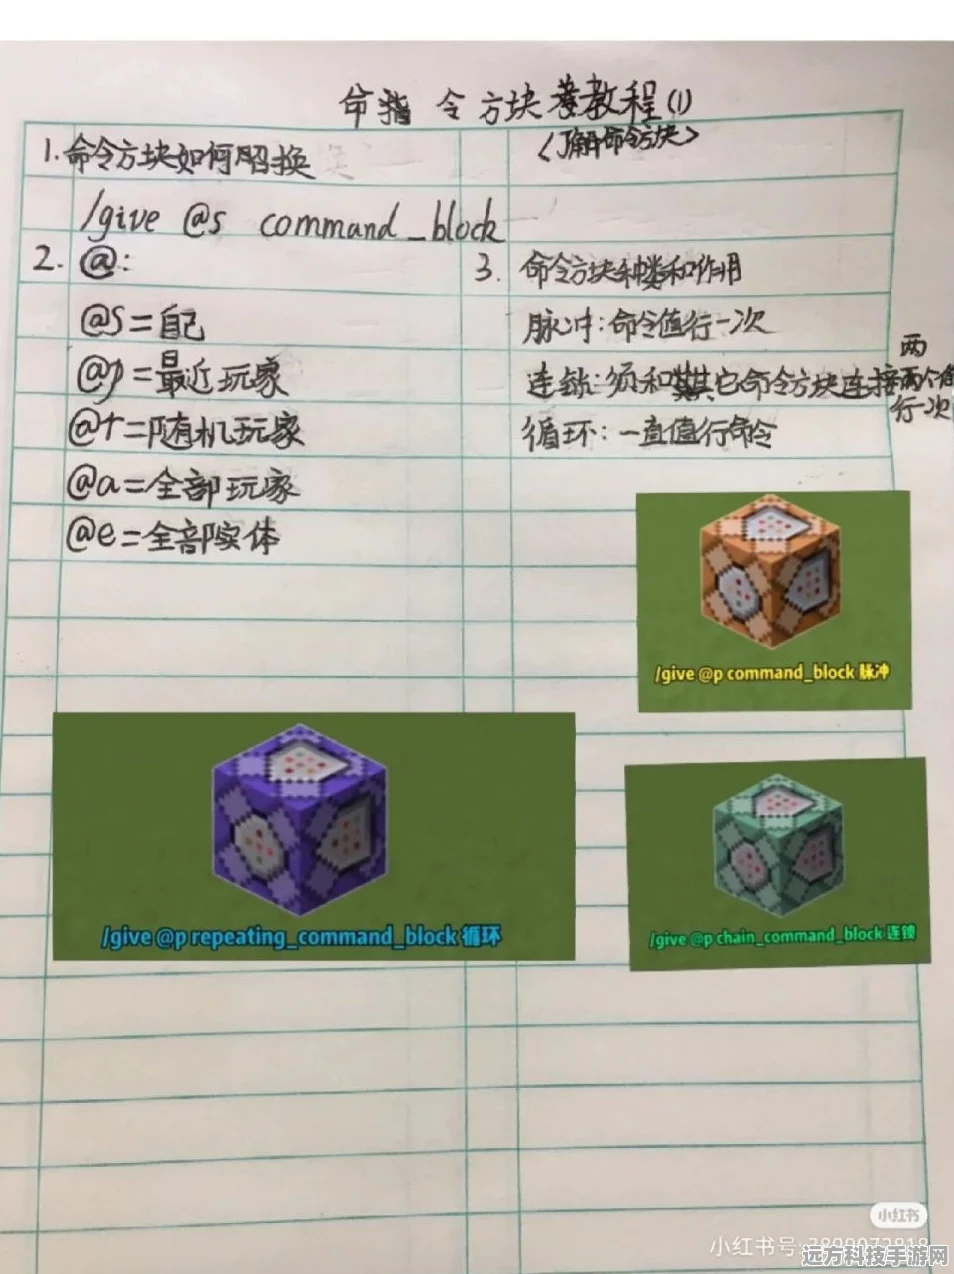 命指令方块教程(1)
<了解命令方块>
1.命令方块如何照换
/give @s command_block
2. @:
@s=自己
@p=最近玩家
@r=随机玩家
@a=全部玩家
@e=全部实体
3. 命令方块种类和作用
脉冲:命令值行一次
连锁:须和其它命令方块连接两个值
两
行一次
循环:一直值行命令
/give @p command_block 脉冲
/give @p repeating_command_block 循环
/give @p chain_command_block 连锁
小红书
小红书号:
远方科技手游网